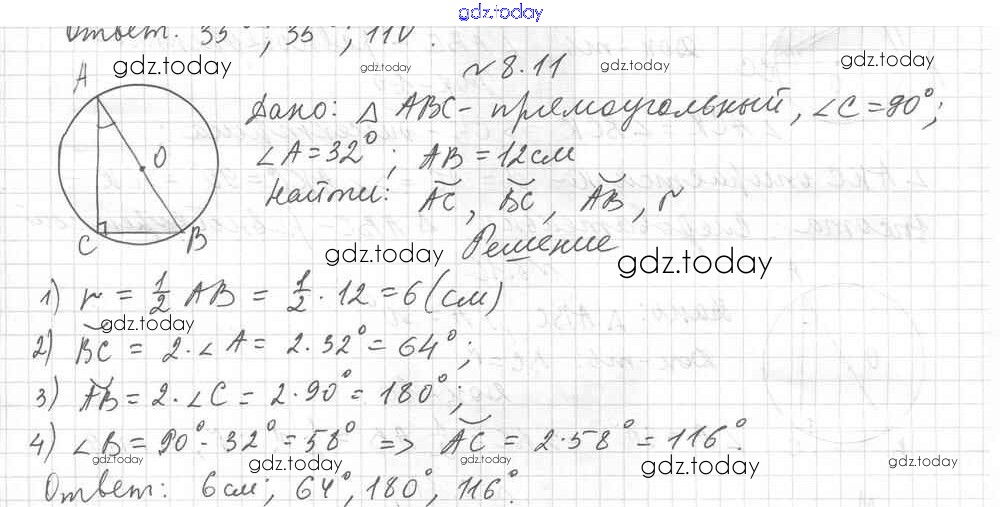 gdz.today
Ответ: 35°; 35°; 110°.
gdz.today gdz.today gdz.today gdz.today
№ 8.11
A
Дано: △ ABC - прямоугольный, ∠C = 90°;
O
∠A = 32°; AB = 12 см
Найти: ◡AC, ◡BC, ◡AB, r
C B
gdz.today
Решение
gdz.today
1) r = 1/2 AB = 1/2 · 12 = 6 (см)
gdz.today
2) ◡BC = 2 · ∠A = 2 · 32° = 64°;
3) ◡AB = 2 · ∠C = 2 · 90° = 180°;
4) ∠B = 90° - 32° = 58° => ◡AC = 2 · 58° = 116°.
gdz.today gdz.today gdz.today gdz.today gdz.today
Ответ: 6 см; 64°, 180°, 116°.